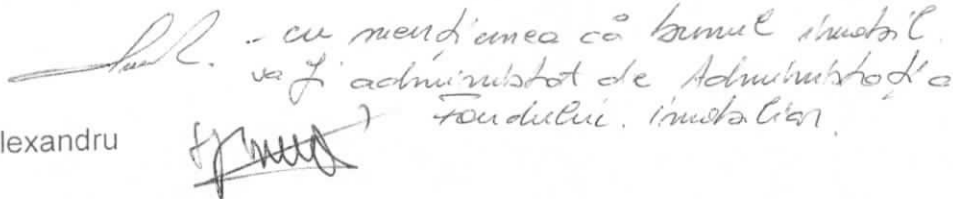 - cu mențiunea că bunul imobil
va fi administrat de Administrația
Fondului. imobiliar.
lexandru